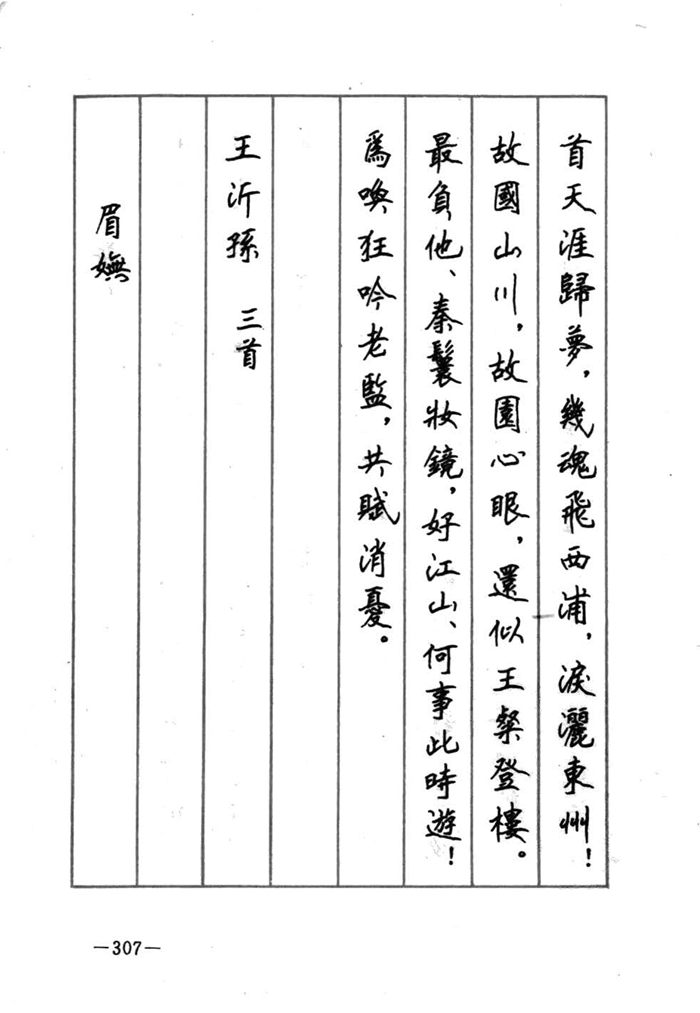 首天涯歸夢，幾魂飛西浦，淚灑東州！
故國山川，故園心眼，還似王粲登樓。
最負他、秦鬟妝鏡，好江山、何事此時遊！
爲喚狂吟老監，共賦消憂。
王沂孫　三首
眉嫵
—307—